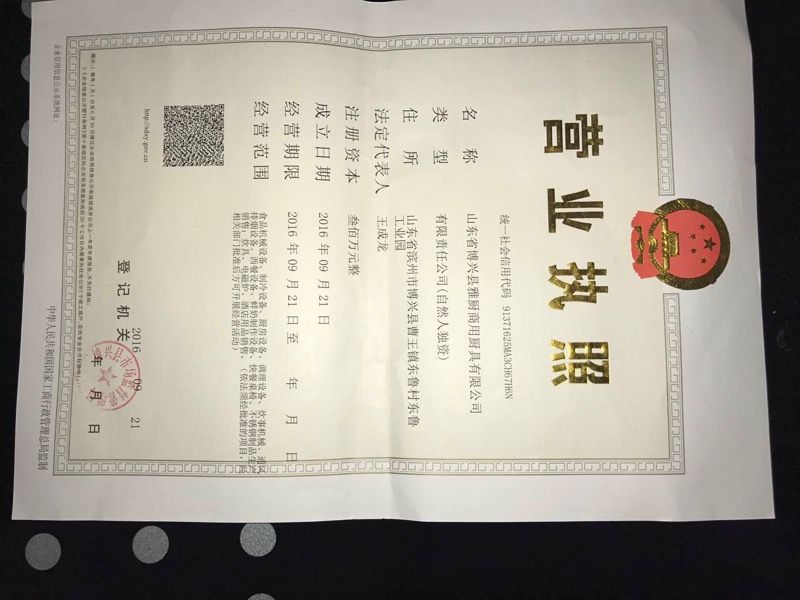 营业执照
统一社会信用代码 91371625MA3CH67H6N
名称 山东省博兴县雅厨商用厨具有限公司
类型 有限责任公司(自然人独资)
住所 山东省滨州市博兴县曹王镇东鲁村东鲁
工业园
法定代表人 王成龙
注册资本 叁佰万元整
成立日期 2016年09月21日
经营期限 2016年09月21日至 年 月 日
经营范围 食品机械设备、制冷设备、厨房设备、调理设备、炊事机械、通风
排烟设备、西餐设备、鲜奶制作设备、快餐桌椅、不锈钢制品生产
销售;炊具、电磁炉、酒店用品销售。(依法须经批准的项目,经
相关部门批准后方可开展经营活动)
登记机关
2016 09 21
年 月 日
http://sdxy.gov.cn
企业信用信息公示系统网址:
中华人民共和国国家工商行政管理总局监制